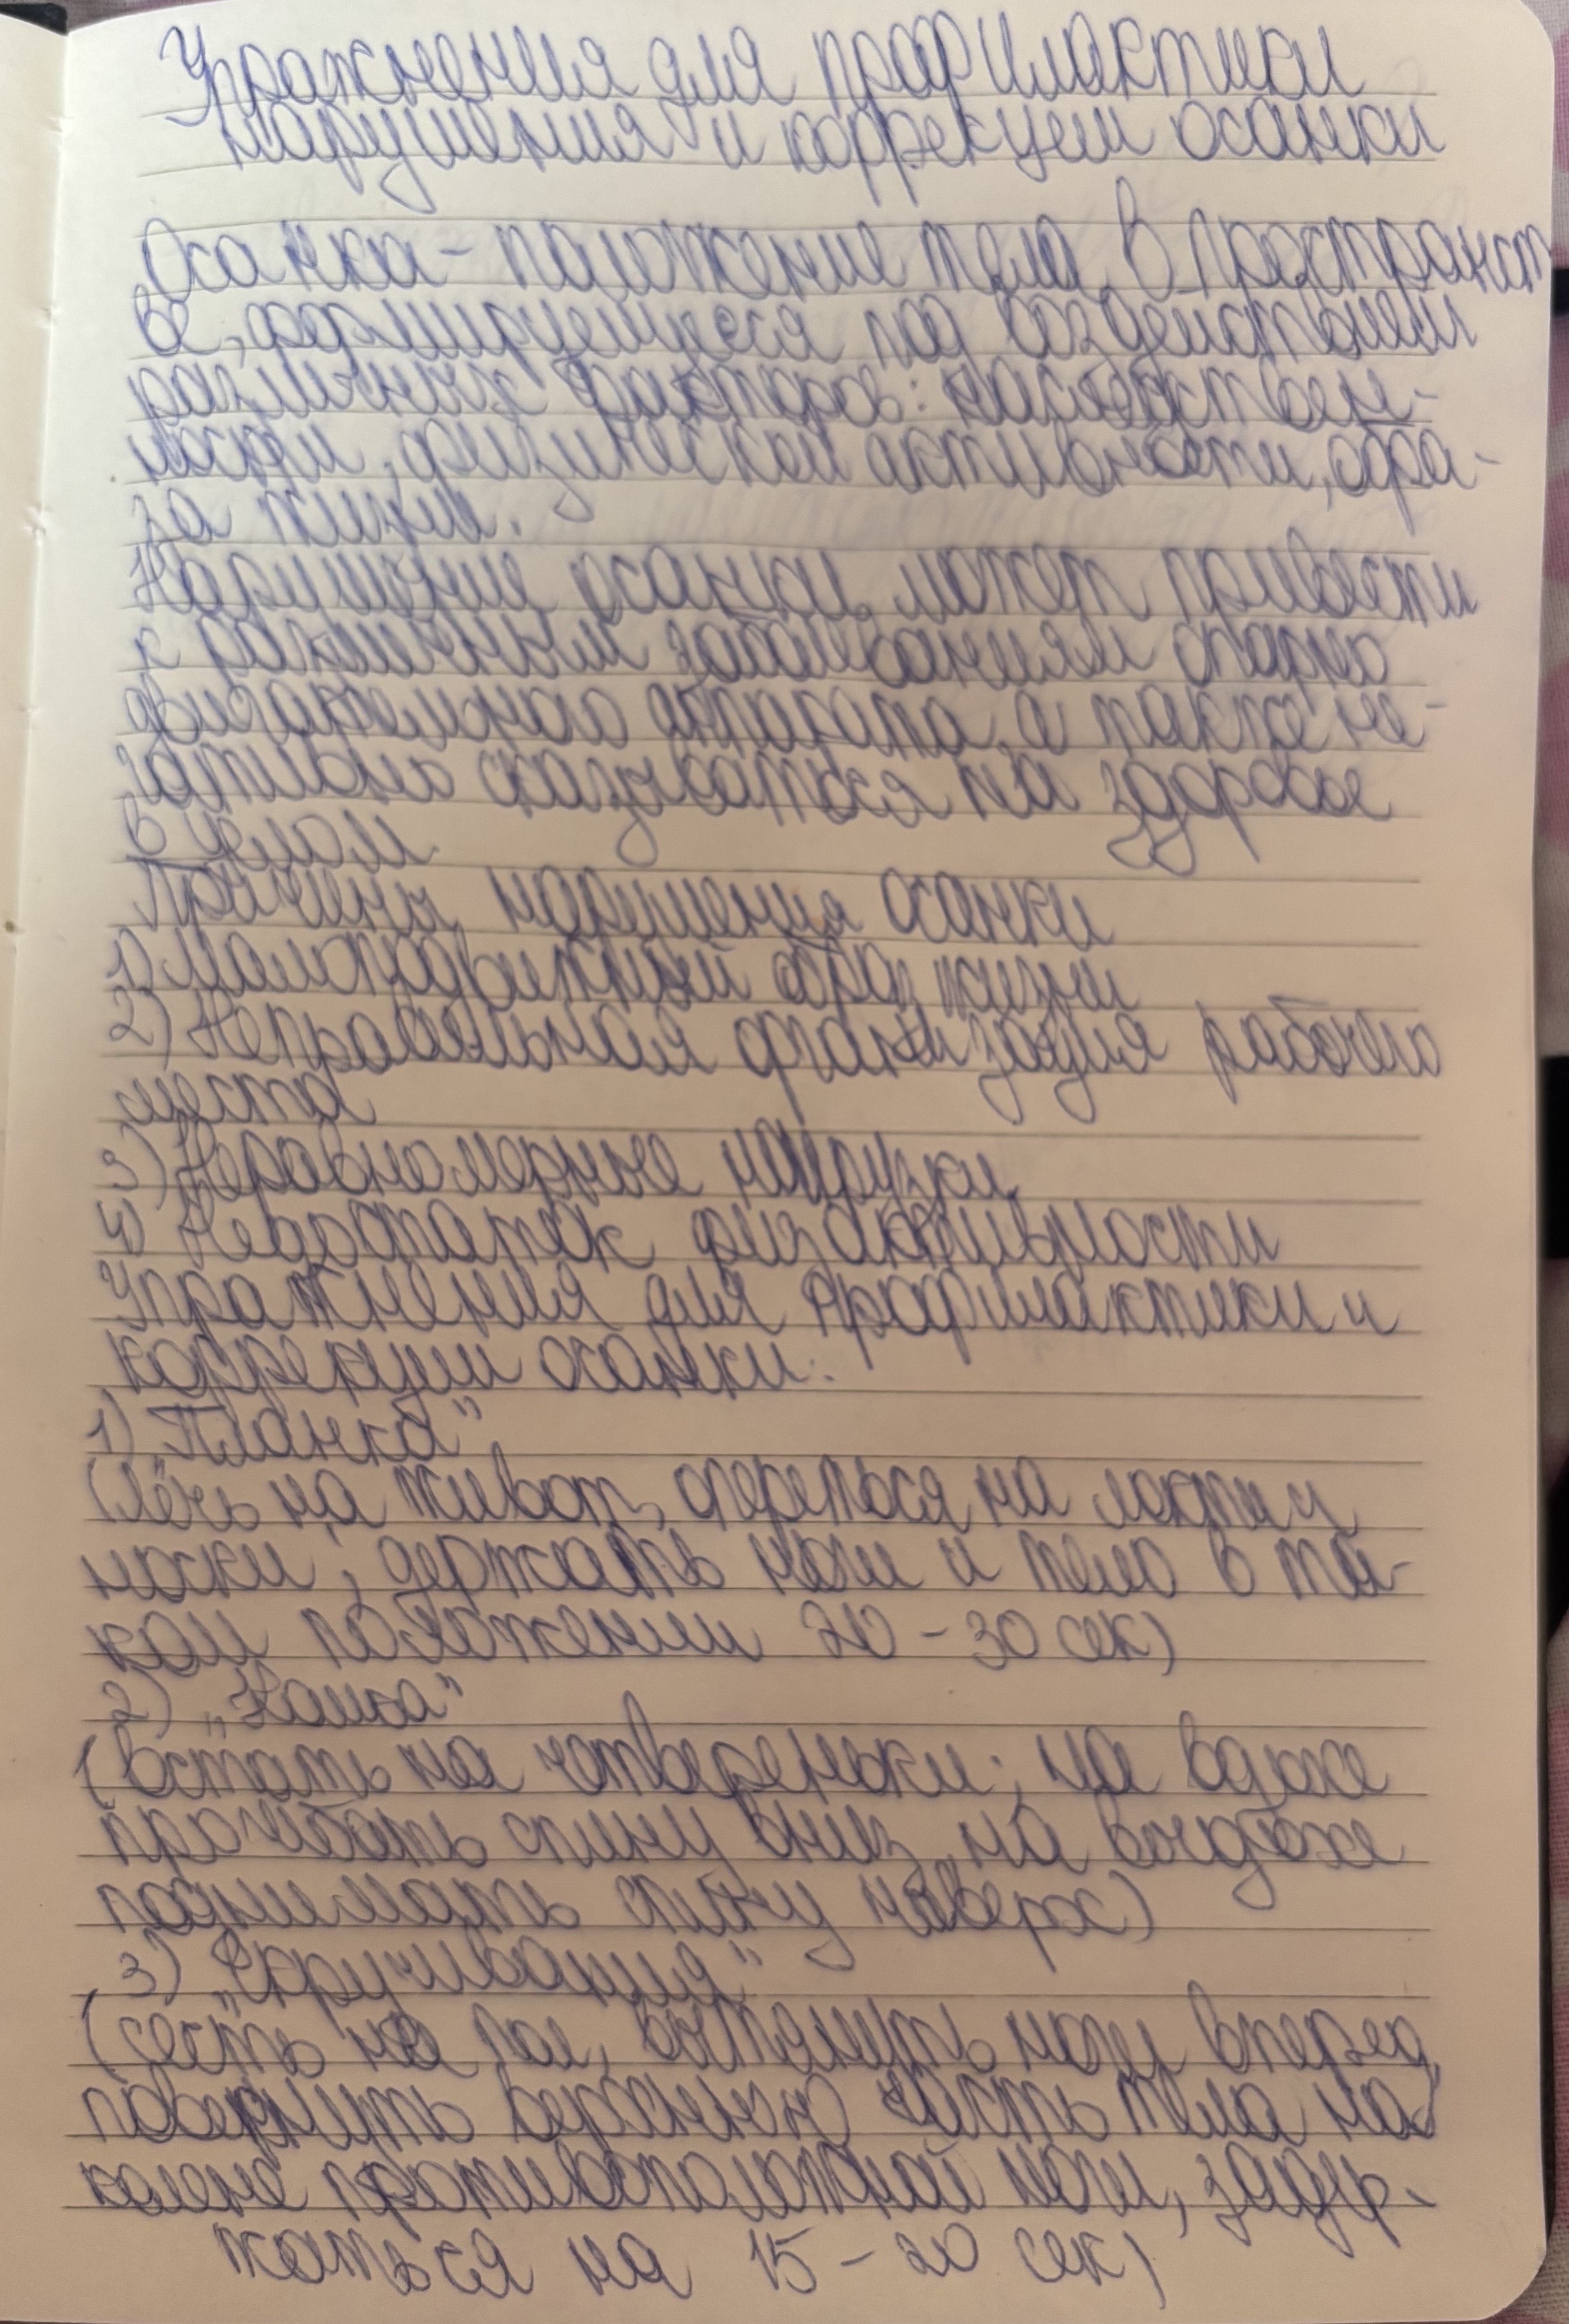 Упражнения для профилактики
нарушения и коррекции осанки
Осанка - положение тела в пространст
ве, формирующееся под воздействием
различных факторов: наследствен-
ности, физической активности, обра-
за жизни.
Нарушение осанки может привести
к различным заболеваниям опорно
двигательного аппарата, а также не-
гативно сказываться на здоровье
в целом.
Причины нарушения осанки
1) Малоподвижный образ жизни
2) Неправильная организация рабочего
места
3) Неравномерные нагрузки
4) Недостаток физ активности
Упражнения для профилактики и
коррекции осанки:
1) „Планка"
(лечь на живот, опереться на локти и
носки; держать ноги и тело в та-
ком положении 20 - 30 сек)
2) „Кошка"
(встать на четвереньки; на вдохе
прогибать спину вниз, на выдохе
поднимать спину наверх)
3) „Скручивания"
(сесть на пол, вытянуть ноги вперед,
повернуть верхнюю часть тела на
колено противоположной ноги, задер-
жаться на 15 - 20 сек)